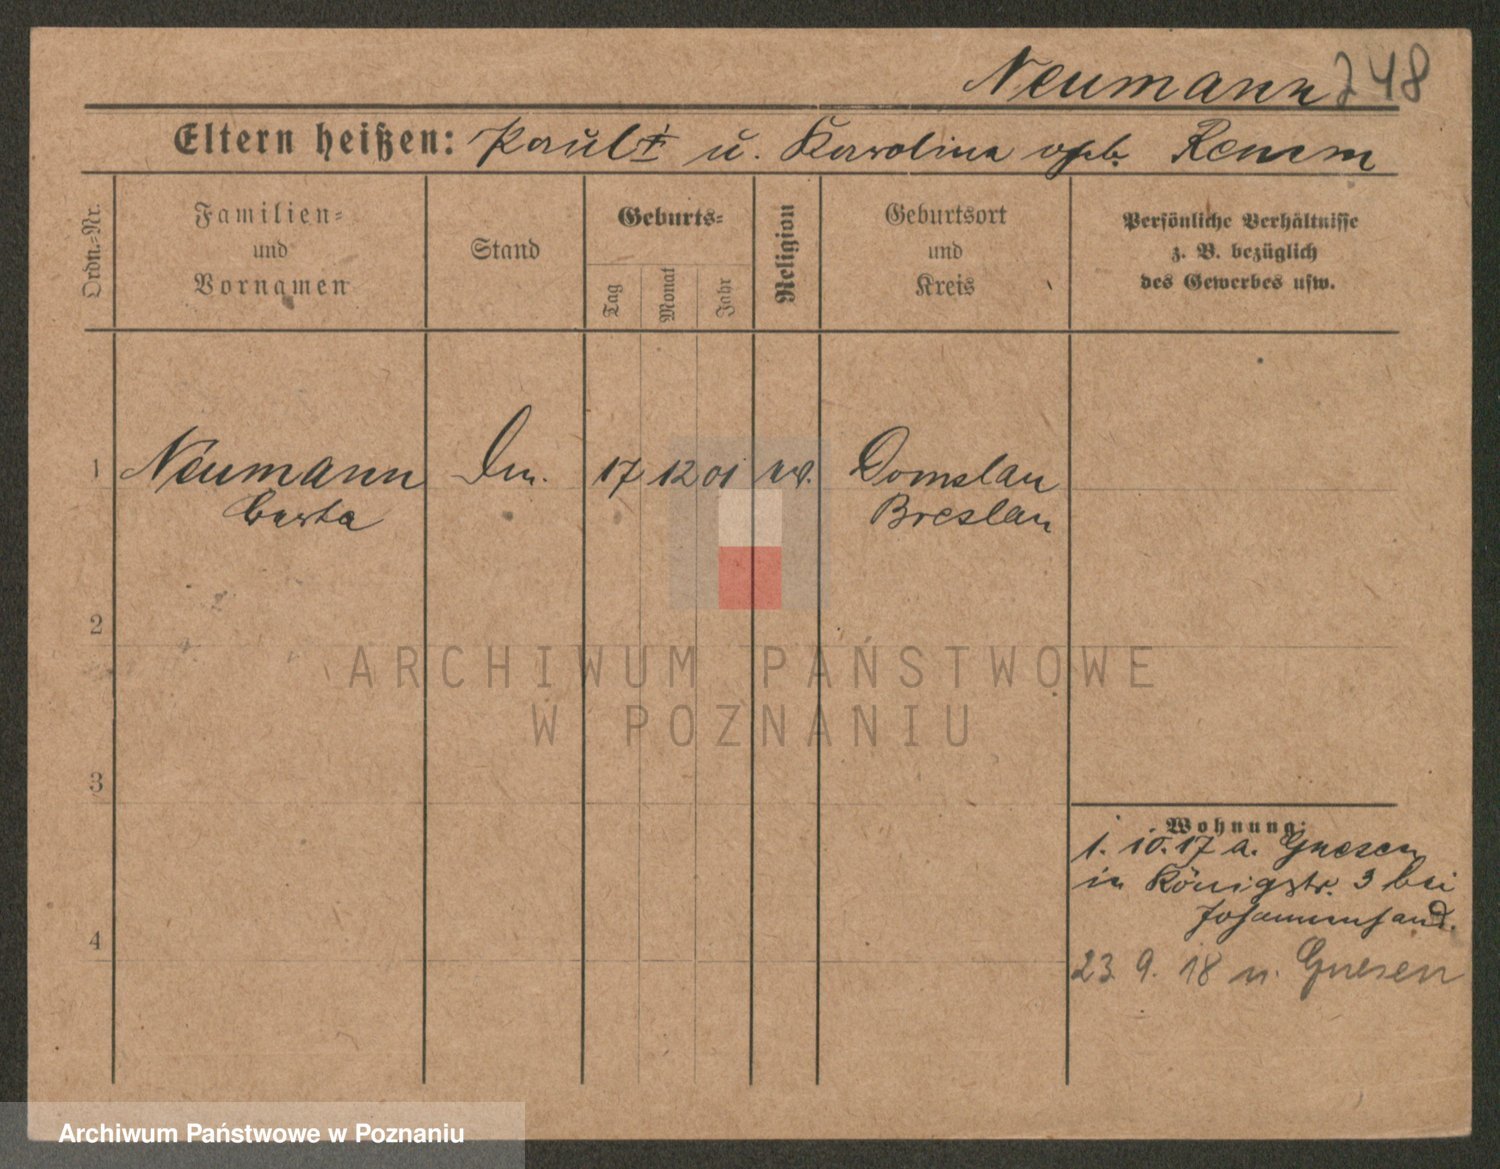 Neumann 248
Eltern heißen: Paul † u. Karolina geb.
Ordn.-Nr.
Familien-
und
Vornamen
Stand
Geburts-
Tag
Monat
Jahr
Religion
Geburtsort
und
Kreis
Persönliche Verhältnisse
z. B. bezüglich
des Gewerbes usw.
1 Neumann 17 12 01 ev. Domslau
Berta Breslau
2
3
Wohnung:
1. 10. 17 a. Gnesen
in Königstr. 3 bei
4
23 9. 18 n. Gnesen
ARCHIWUM PAŃSTWOWE
W POZNANIU
Archiwum Państwowe w Poznaniu